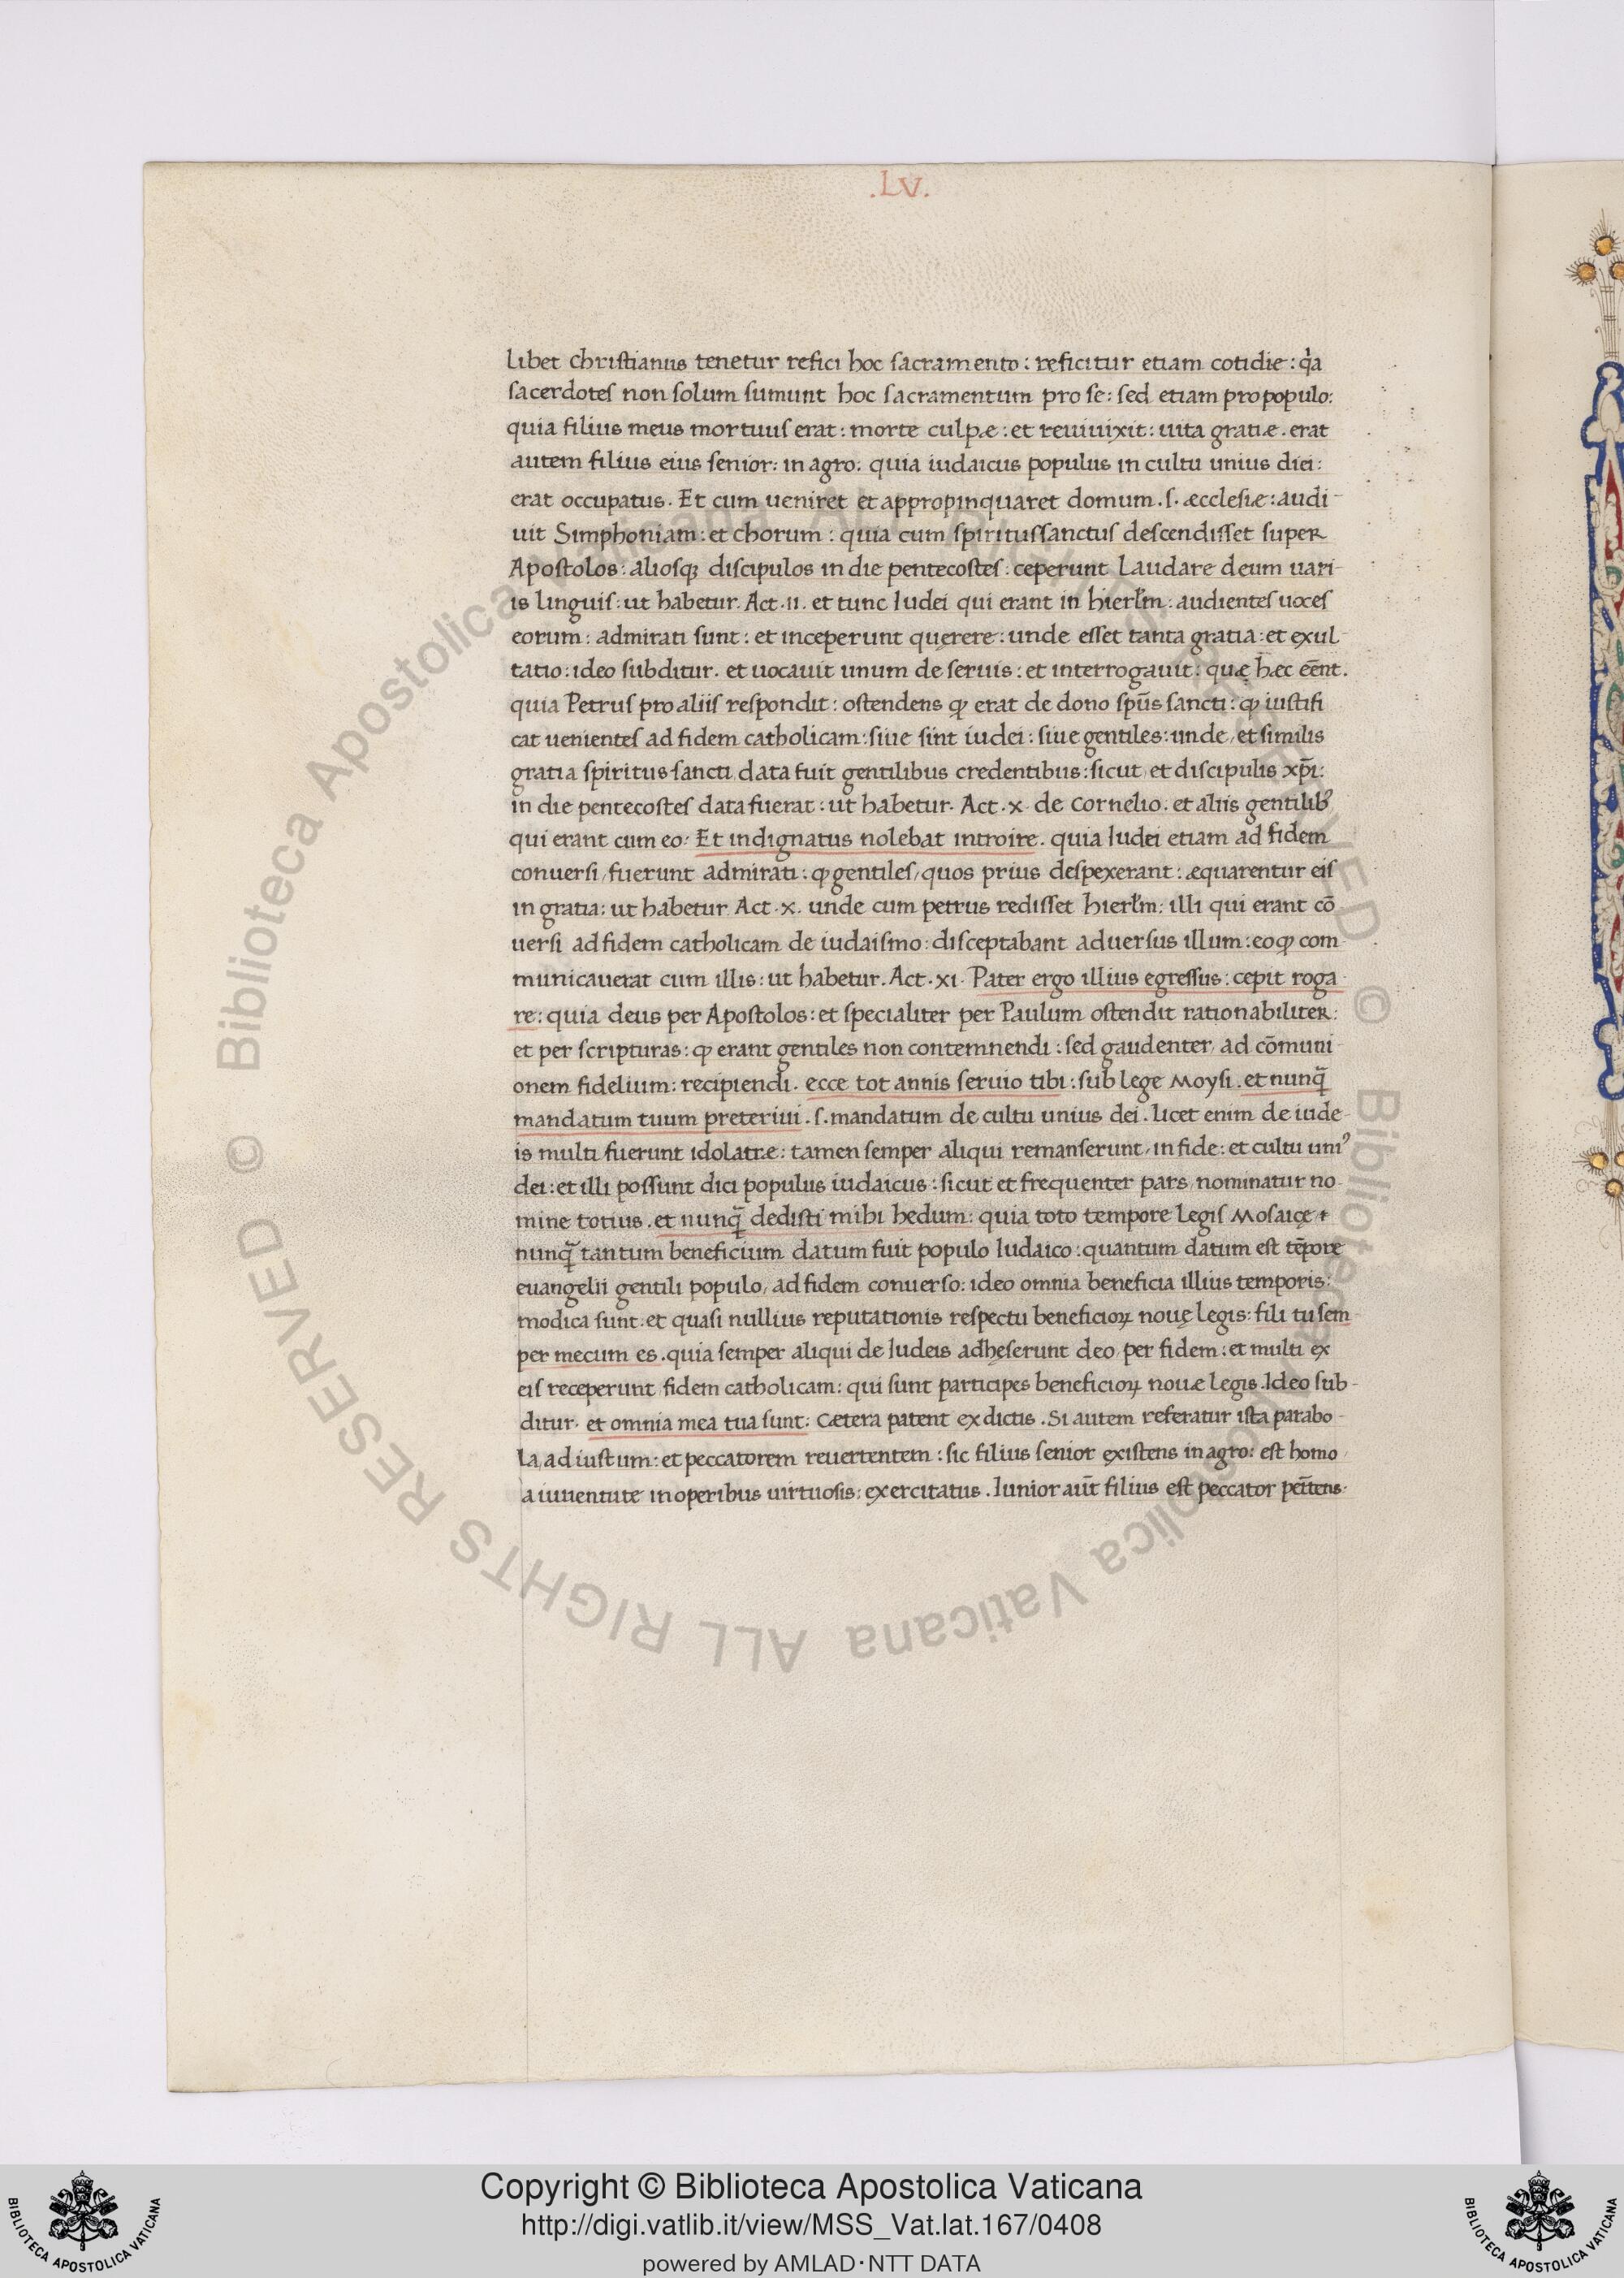 .LV.
libet christianus tenetur refici hoc sacramento: reficitur etiam cotidie: q̇a
sacerdotes non solum sumunt hoc sacramentum pro se: sed etiam pro populo:
quia filius meus mortuus erat: morte culpæ: et reuiuixit: uita gratiæ. erat
autem filius eius senior: in agro: quia iudaicus populus in cultu unius diei:
erat occupatus. Et cum ueniret et appropinquaret domum. s. æcclesiæ: audi-
uit Simphoniam: et chorum: quia cum spiritussanctus descendisset super
Apostolos: aliosqꝫ discipulos in die pentecostes: ceperunt laudare deum uari-
is linguis: ut habetur. Act. 11. et tunc Iudei qui erant in hierl̄m: audientes uoces
eorum: admirati sunt: et inceperunt quęrere: unde esset tanta gratia: et exul-
tatio: ideo subditur. et uocauit unum de seruis: et interrogauit: quæ hæc eēnt.
quia Petrus pro aliis respondit: ostendens ꝙ erat de dono spūs sancti: ꝙ iustifi
cat uenientes ad fidem catholicam: siue sint iudei: siue gentiles: unde, et similis
gratia spiritus sancti, data fuit gentilibus credentibus: sicut, et discipulis xp̄i:
in die pentecostes data fuerat: ut habetur. Act. x. de Cornelio. et aliis gentilibꝰ
qui erant cum eo: Et indignatus nolebat introire. quia Iudei etiam ad fidem
conuersi, fuerunt admirati: ꝙ gentiles, quos prius despexerant: æquarentur eis
in gratia: ut habetur Act. x. unde cum petrus redisset hierl̄m: illi qui erant cō
uersi ad fidem catholicam de iudaismo: disceptabant aduersus illum: eo ꝙ com-
municauerat cum illis: ut habetur. Act. xi. Pater ergo illius egressus: cepit roga-
re: quia deus per Apostolos: et specialiter per Paulum ostendit rationabiliter:
et per scripturas: ꝙ erant gentiles non contemnendi: sed gaudenter, ad cōmuni-
onem fidelium: recipiendi. ecce tot annis seruio tibi: sub lege Moysi. et nunq̄
mandatum tuum preteriui. s. mandatum de cultu unius dei. licet enim de iude-
is multi fuerunt idolatræ: tamen semper aliqui remanserunt, in fide: et cultu uniꝰ
dei: et illi possunt dici populus iudaicus: sicut et frequenter pars, nominatur no-
mine totius. et nunq̄ dedisti mihi hedum: quia toto tempore legis Mosaicę
nunq̄ tantum beneficium datum fuit populo Iudaico: quantum datum est tēpore
euangelii gentili populo, ad fidem conuerso: ideo omnia beneficia illius temporis:
modica sunt: et quasi nullius reputationis respectu beneficioꝝ nouę legis: fili tu sem
per mecum es. quia semper aliqui de Iudeis adhęserunt deo, per fidem: et multi ex
eis receperunt fidem catholicam: qui sunt participes beneficioꝝ nouæ legis. Ideo sub-
ditur. et omnia mea tua sunt: cætera patent ex dictis. Si autem referatur ista parabo-
la, ad iustum: et peccatorem reuertentem: sic filius senior existens in agro: est homo
a iuuentute in operibus uirtuosis: exercitatus. Iunior aūt filius est peccator pēītens.
© Biblioteca Apostolica Vaticana ALL RIGHTS RESERVED © Biblioteca Apostolica Vaticana ALL RIGHTS RESERVED
Copyright © Biblioteca Apostolica Vaticana
http://digi.vatlib.it/view/MSS_Vat.lat.167/0408
powered by AMLAD·NTT DATA
BIBLIOTECA APOSTOLICA VATICANA
BIBLIOTECA APOSTOLICA VATICANA